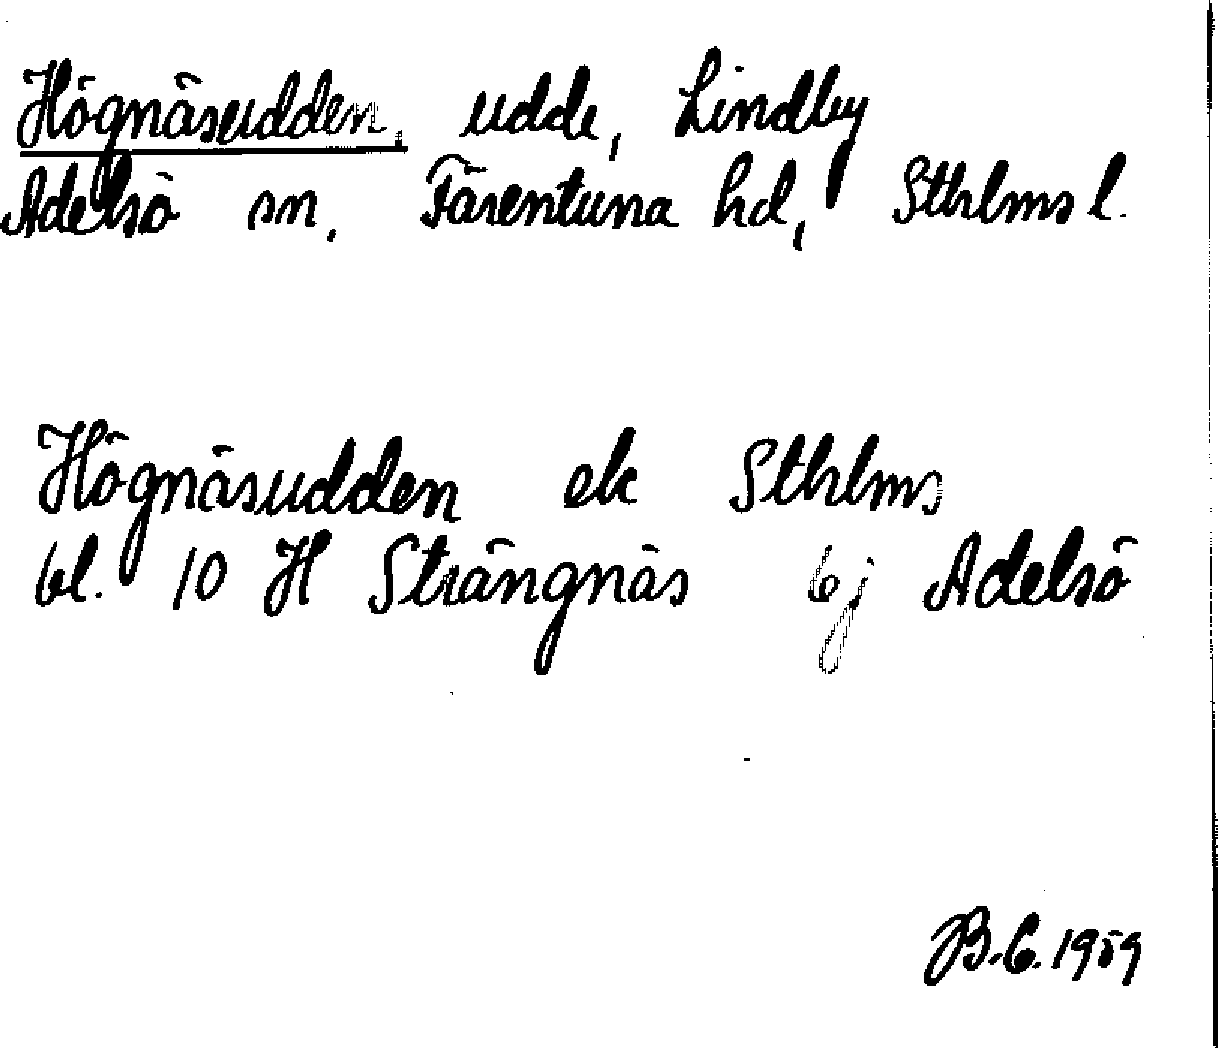 Högnäsudden, udde, Lindby
Adelsö sn, Färentuna hd, Sthlms l.
Högnäsudden ek Sthlms
bl. 10 H Strängnäs 6j Adelsö
B.C. 1959